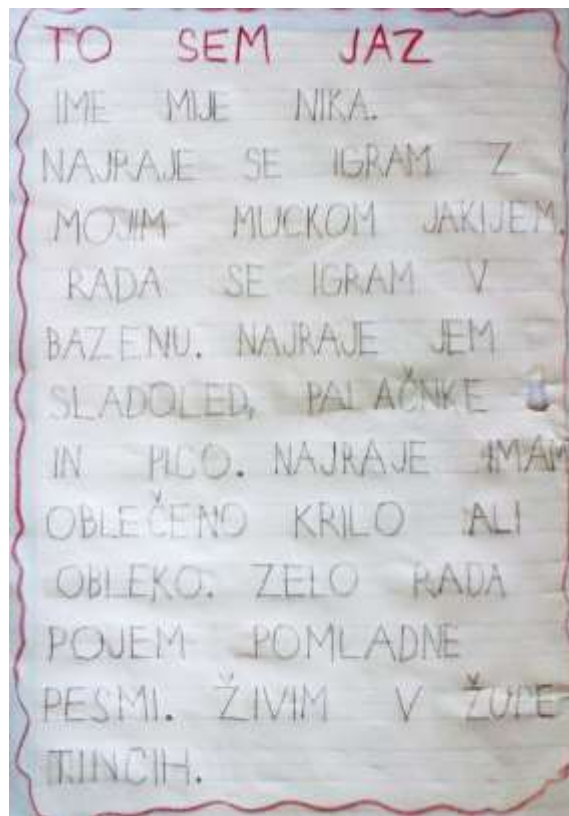 TO SEM JAZ
IME MIJE NIKA.
NAJRAJE SE IGRAM Z
MOJIM MUCKOM JAKIJEM.
RADA SE IGRAM V
BAZENU. NAJRAJE JEM
SLADOLED, PALAČNKE
IN PICO. NAJRAJE IMAM
OBLEČENO KRILO ALI
OBLEKO. ZELO RADA
POJEM POMLADNE
PESMI. ŽIVIM V ŽUPE-
TINCIH.